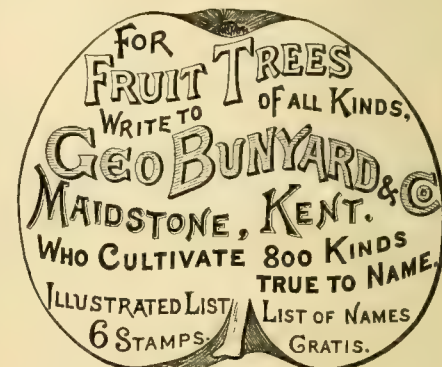 FOR
FRUIT TREES
WRITE TO OF ALL KINDS,
GEO BUNYARD & CO
MAIDSTONE, KENT.
WHO CULTIVATE 800 KINDS
TRUE TO NAME.
ILLUSTRATED LIST
6 STAMPS.
LIST OF NAMES
GRATIS.